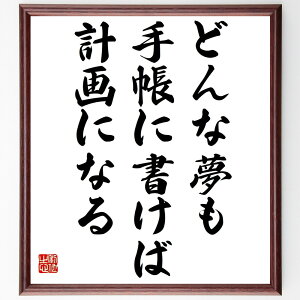 どんな夢も
手帳に書けば
計画になる